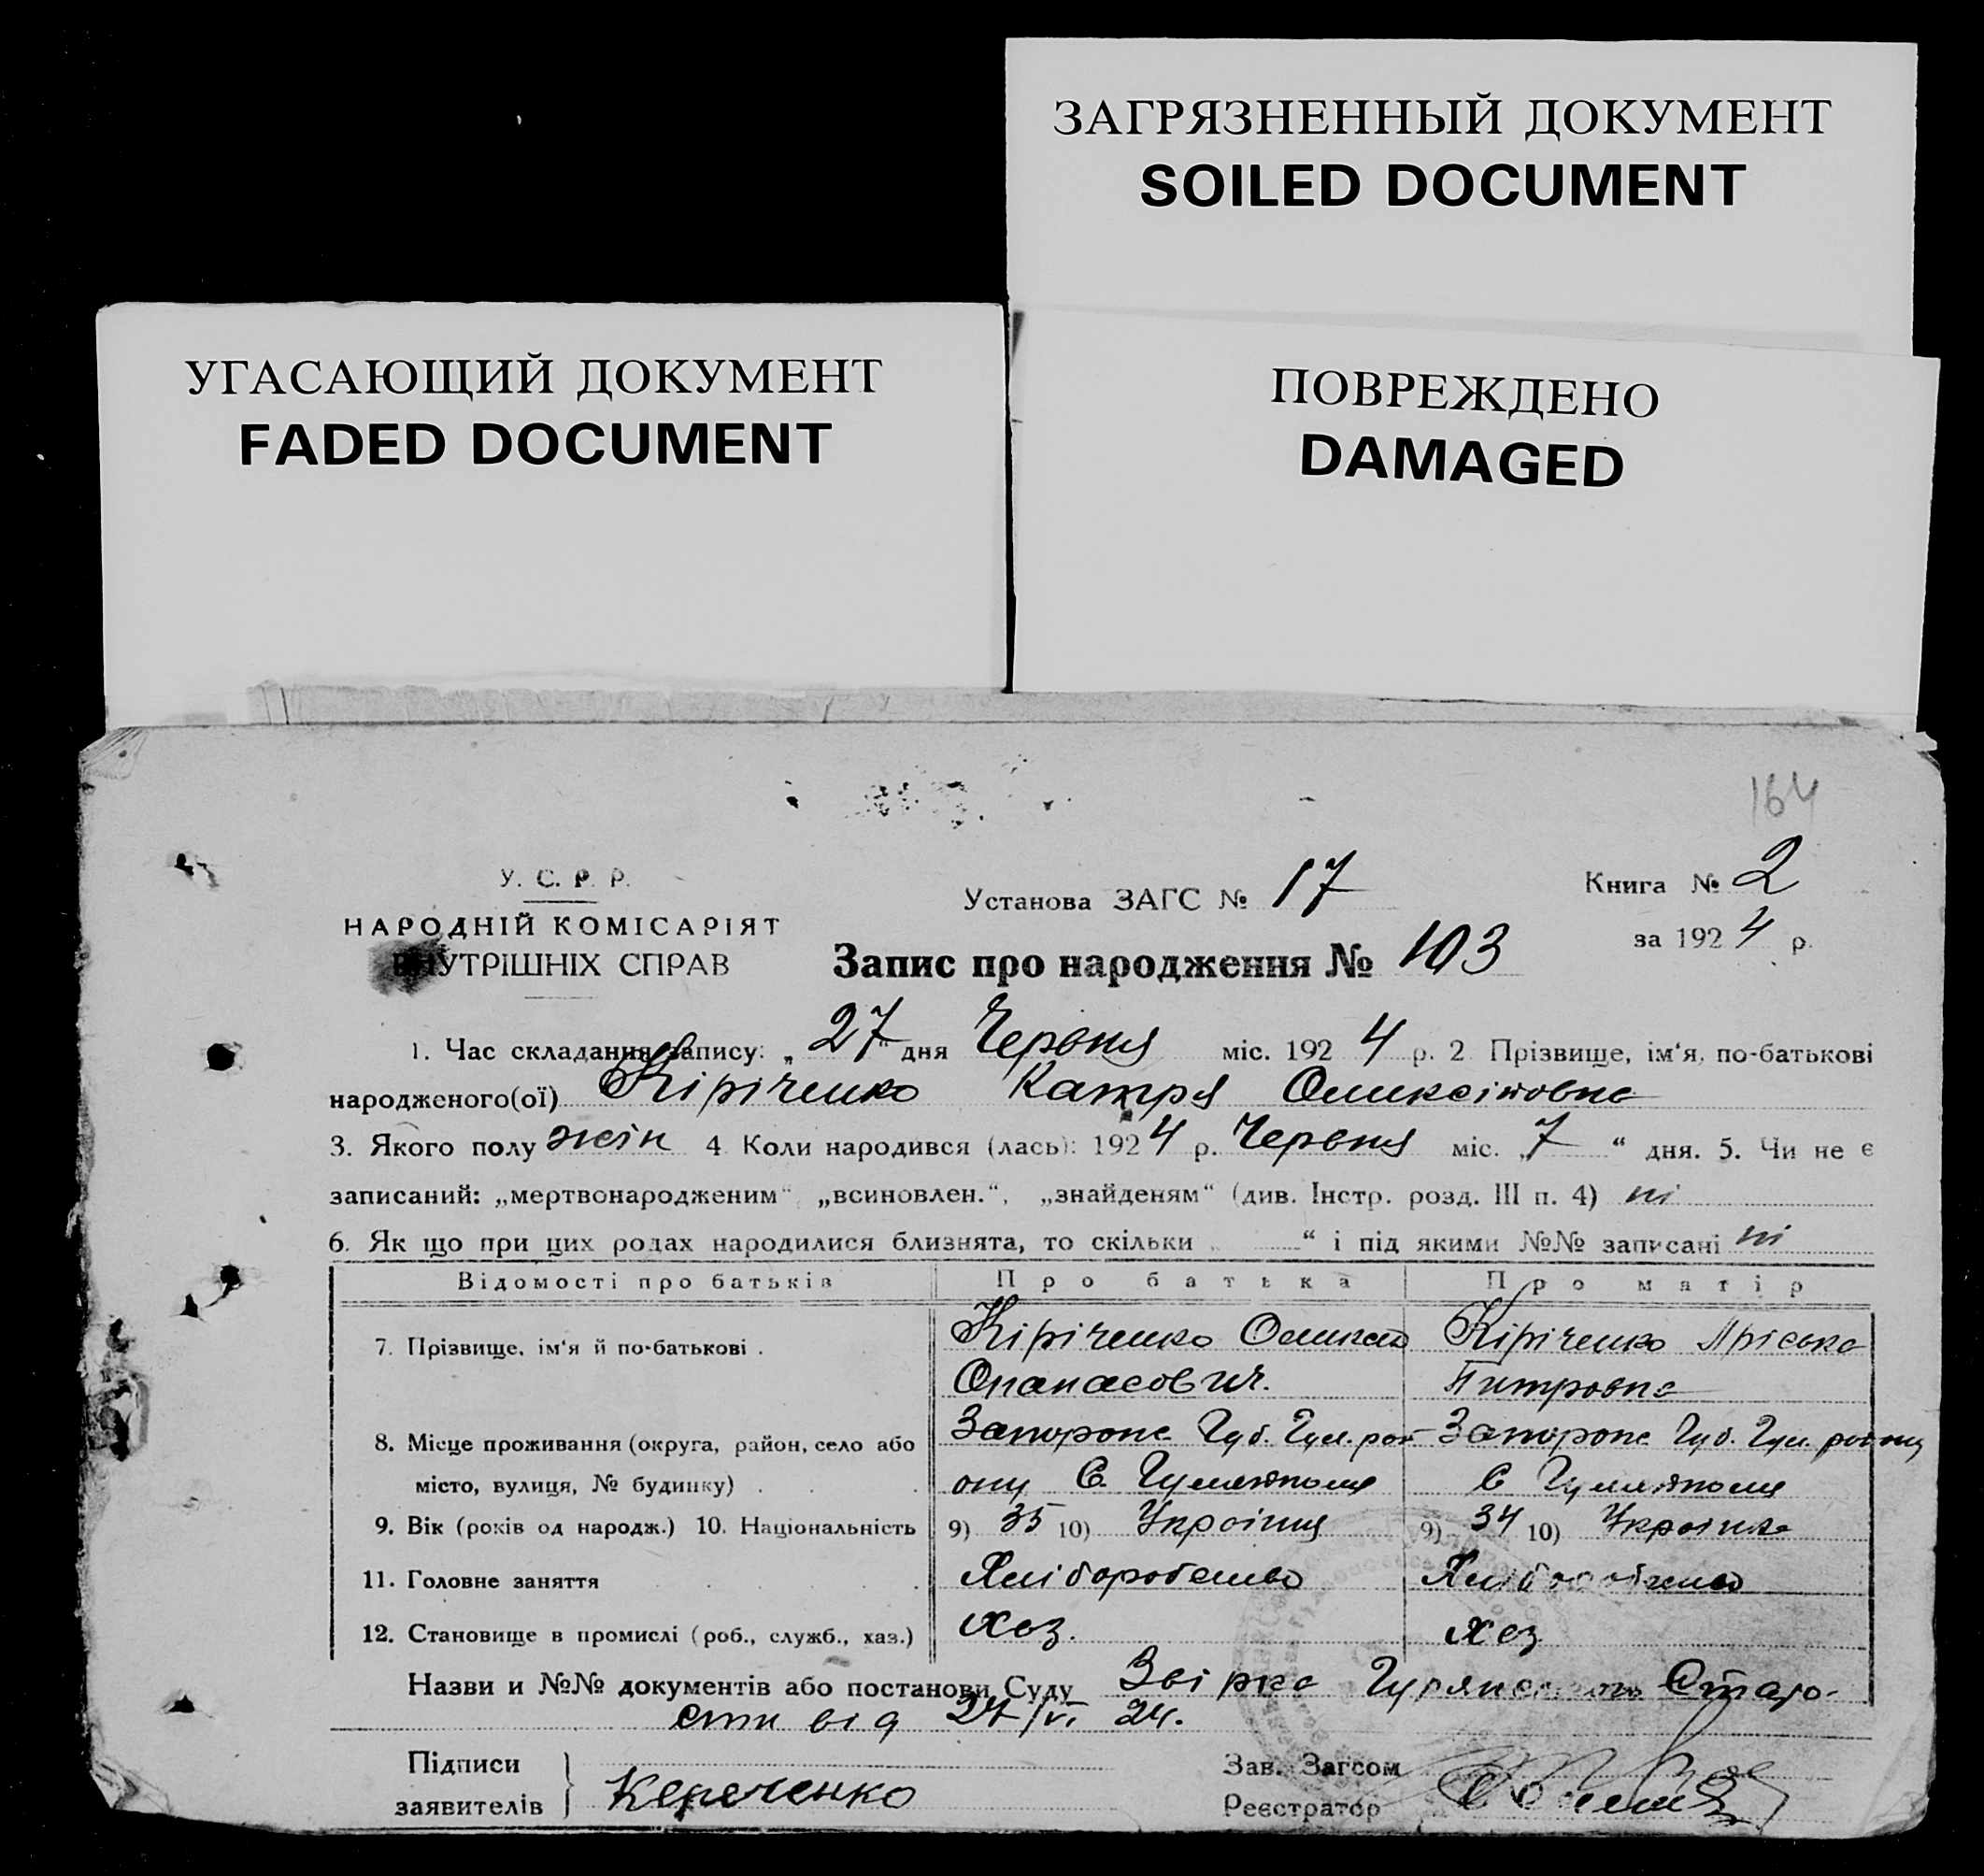 ЗАГРЯЗНЕННЫЙ ДОКУМЕНТ
SOILED DOCUMENT
УГАСАЮЩИЙ ДОКУМЕНТ
FADED DOCUMENT
ПОВРЕЖДЕНО
DAMAGED
164
У. С. Р. Р.
НАРОДНІЙ КОМІСАРІЯТ
ВНУТРІШНІХ СПРАВ
Установа ЗАГС № 17
Книга № 2
за 1924 р.
Запис про народження № 103
1. Час складання запису: „27" дня Червня міс. 1924 р. 2 Прізвище, ім'я, по-батькові
народженого(ої) Кіріченко Катря Оликсіивовна
3. Якого полу жін 4 Коли народився (лась): 1924 р. Червня міс. „7“ дня. 5. Чи не є
записаний: „мертвонародженим“ „всиновлен.“, „знайденям“ (див. Інстр. розд. III п. 4) ні
6. Як що при цих родах народилися близнята, то скільки „ “ і під якими №№ записані ні
Відомості про батьків Про батька Про матір
7. Прізвище, ім'я й по-батькові . Кіріченко Кіріченко Пріська
Опанасович. Питровна
8. Місце проживання (округа, район, село або Запорож Губ. Гул. рай- Запорож Губ. Гул. району
місто, вулиця, № будинку) . . . ону С. Гуляйполя С Гуляйполя
9. Вік (років од народж.) 10. Національність 9) 35 10) Українц 9) 34 10) Українка
11. Головне заняття . . . Хліборобство Хліборобство
12. Становище в промислі (роб., служб., хаз.) Хоз. Хоз
Назви и №№ документів або постанови Суду Старо-
сти від 27/VI 24.
Підписи
заявителів
Кереченко
Зав. Загсом
Реєстратор